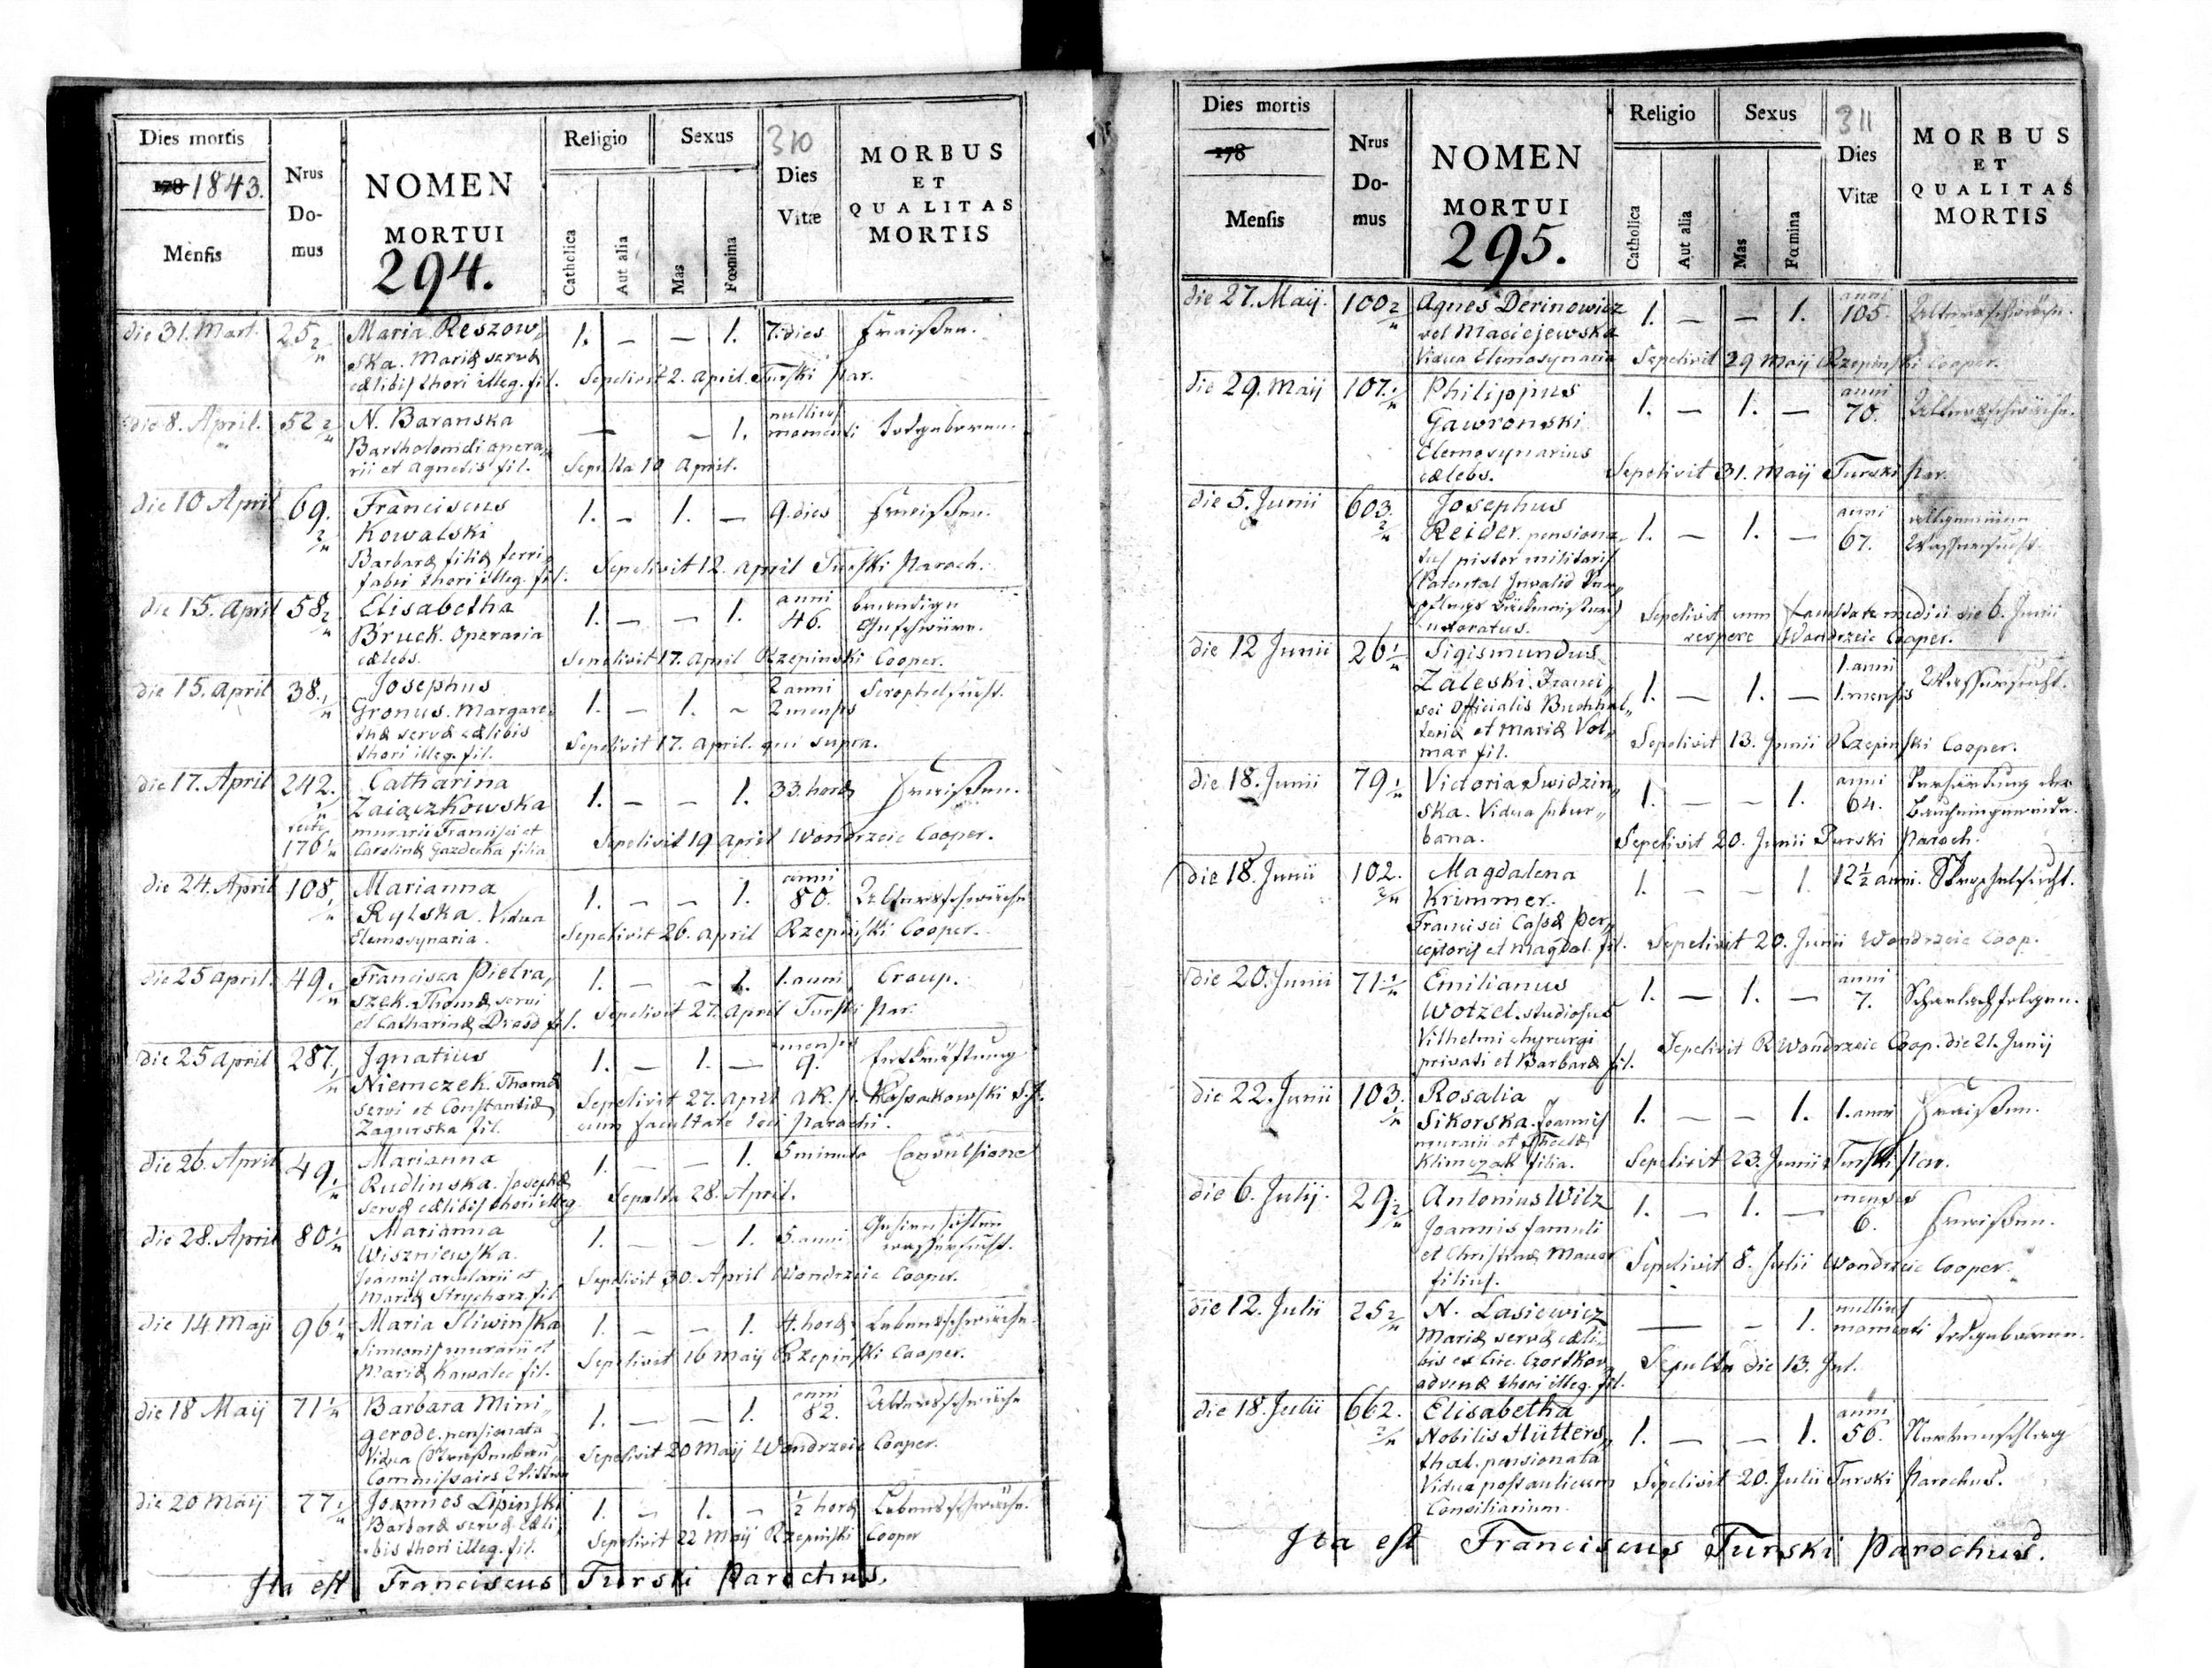 Dies mortis
178 1843.
Mensis
Nrus
Do-
mus
NOMEN
MORTUI
294.
Religio
Catholica
Aut alia
Sexus
Mas
Fœmina
310
Dies
Vitæ
MORBUS
ET
QUALITAS
MORTIS
die 31. Mart. 25 2/n Maria Reszow„ 1. — — 1. 7. dies Fraißen.
ska. Mariæ servæ
cælibis thori illeg. fil. Sepelivit 2. April. Turski Par.
die 8. April. 52 2/n N. Baranska — — 1. nullius
momenti Todgeboren.
Bartholomæi opera„
rii et Agnetis fil. Sepulta 10 April.
die 10 April 69. 2/n Franciscus 1. — 1. — 9. dies Fraißen.
Kowalski
Barbaræ filiæ ferri„
fabri thori illeg. fil. Sepelivit 12. April Turski Paroch.
die 15. April 58 2/n Elisabetha 1. — — 1. anni
46. brandige
Geschwüre.
Bruck. Operaria
cælebs. Sepelivit 17. April Rzepinski Cooper.
die 15. April 38. 1/n Josephus 1. — 1. — 2 anni
2 menses Scrophelsucht.
Gronus. Margare„
thæ servæ cælibis
thori illeg. fil. Sepelivit 17. April. qui supra.
die 17. April 242. 1/n Catharina 1. — — 1. 33. horæ Fraißen.
Zaiączkowska
176 1/n murarii Francisci et
Carolinæ Gazdecka filia Sepelivit 19 April Wondrzeic Cooper.
die 24. April 108 1/n Marianna 1. — — 1. anni
80. Altersschwäche
Rylska. Vidua
Elemosynaria. Sepelivit 26. April Rzepinski Cooper.
die 25 April. 49. 1/n Francisca Pietra„ 1. — — 1. 1. anni Croup.
szek. Thomæ servi
et Catharinæ Drozd fil. Sepelivit 27. April Turski Par.
die 25 April 287. 1/n Ignatius 1. — 1. — menses
9. Entkräftung
Niemczek. Thomæ
servi et Constantiæ
Zagurska fil. Sepelivit 27. April A.R.P. Kossakowski S.J.
cum facultate loci Parochi.
die 26. April 49. 1/n Marianna 1. — — 1. 5 minuta Convulsione
Rudlinska. Josephæ
servæ cælibis thori illeg. Sepulta 28. April.
die 28. April 80 1/n Marianna 1. — — 1. 5. anni Gehirnhöhlen
wassersucht.
Wiszniewska.
Joannis arcularii et
Mariæ Strycharz fil. Sepelivit 30. April Wondrzeic Cooper.
die 14 Maji 96 1/n Maria Sliwinska 1. — — 1. 4. horæ Lebensschwäche.
Simeonis murarii et
Mariæ Kawalec fil. Sepelivit 16 Maij Rzepinski Cooper.
die 18 Maij 71 1/n Barbara Mini„ 1. — — 1. anni
82. Altersschwäche
gerode. pensionata
Vidua (Straßenbau„
Commissairs Witwe Sepelivit 20 Maij Wondrzeic Cooper.
die 20 Maij 77 1/n Joannes Lipinski 1. — 1. — 1/2 horæ Lebensschwäche.
Barbaræ servæ cæli„
bis thori illeg. fil. Sepelivit 22 Maij Rzepinski Cooper
Ita est Franciscus Turski Parochus.
Dies mortis
178
Mensis
Nrus
Do-
mus
NOMEN
MORTUI
295.
Religio
Catholica
Aut alia
Sexus
Mas
Fœmina
311
Dies
Vitæ
MORBUS
ET
QUALITAS
MORTIS
die 27. Maij. 100 2/n Agnes Derinowicz 1. — — 1. anni
105. Altersschwäche.
vel Maciejewska
Vidua Elemosynaria Sepelivit 29 Maij Rzepinski Cooper.
die 29. Maij 107. 1/n Philippus 1. — 1. — anni
70. Altersschwäche.
Gawronski
Elemosynarius
cælebs. Sepelivit 31. Maij Turski Par.
die 5. Junii 603. 2/n Josephus 1. — 1. — anni
67. allgemeine
Wassersucht.
Reider. pensiona„
tus pistor militaris
(Patental Invalid Ver„
pflegs Bäckmeister)
uxoratus. Sepelivit cum facultate medici die 6. Junii
vespere Wondrzeic Cooper.
die 12 Junii 26 1/n Sigismundus 1. — 1. — 1. anni
1. mensis Wassersucht.
Zaleski. Franci„
sci Officialis Buchhal„
teriæ et Mariæ Vol„
mar fil. Sepelivit 13. Junii Rzepinski Cooper.
die 18. Junii 79 1/n Victoria Swidzin„ 1. — — 1. anni
64. Verhärtung der
Baucheingeweide.
ska. Vidua subur„
bana. Sepelivit 20. Junii Turski Paroch.
die 18. Junii 102. 2/n Magdalena 1. — — 1. 12 1/2 anni. Skrophelsucht.
Krimmer.
Francisci Cassæ Per„
ceptoris et Magdal. fil. Sepelivit 20. Junii Wondrzeic Coop.
die 20. Junii 71 1/n Emilianus 1. — 1. — anni
7. Scharlachfolgen.
Wotzel. studiosus
Vilhelmi chyrurgi
privati et Barbaræ fil. Sepelivit R. Wondrzeic Coop. die 21. Junij
die 22. Junii 103. 1/n Rosalia 1. — — 1. 1. anni Fraißen.
Sikorska. Joannis
murarii et Theclæ
Klimczak filia. Sepelivit 23. Junii Turski Par.
die 6. Julij. 29 2/n Antonius Wilz 1. — 1. — menses
6. Fraißen.
Joannis famuli
et Christinæ Mauer
filius. Sepelivit 8. Julii Wondrzeic Cooper.
die 12. Julii 25 2/n N. Lasiewicz — — 1. nullius
momenti Todgeboren.
Mariæ servæ cæli„
bis ex Circ. Czortkov
advenæ thori illeg. fil. Sepulta die 13. Jul.
die 18. Julii 662. 2/n Elisabetha 1. — — 1. anni
56. Nervenschlag
Nobilis Hütters„
thal. pensionata
Vidua post aulicum
Consiliarium. Sepelivit 20. Julii Turski Parochus.
Ita est Franciscus Turski Parochus.